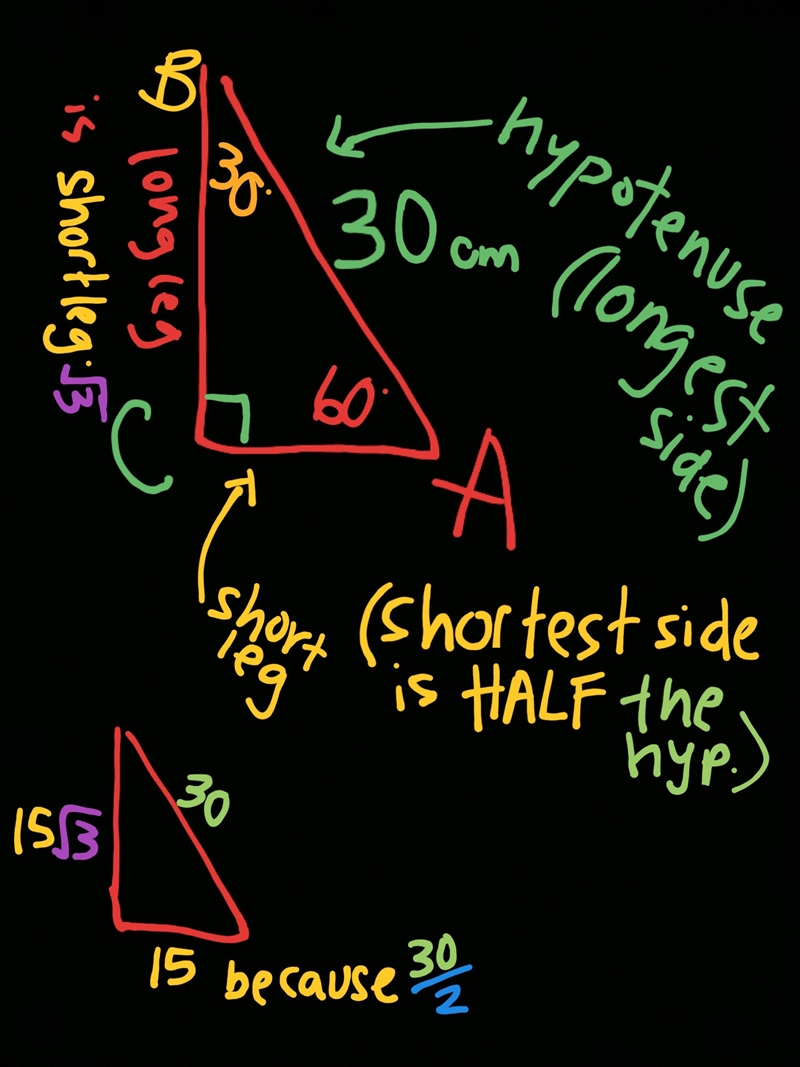 B
30°
long leg
is shortleg · √3
C
60°
A
30 cm
hypotenuse
(longest
side)
short
leg
(shortest side
is HALF the
hyp.)
30
15√3
15 because 30/2